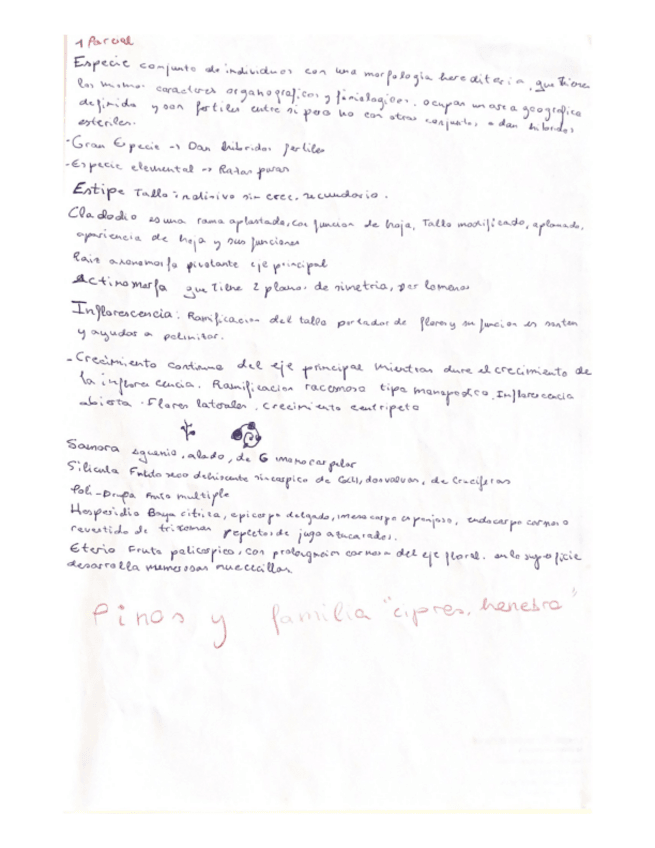 1 Parcial
Especie conjunto de individuos con una morfología hereditaria, que tienen
los mismos caracteres organograficos y fisiologicos, ocupan un area geografica
definida y son fertiles entre si pero no con otros conjuntos, o dan hibridos
esteriles.
- Gran Especie -> Dan hibridos fertiles
- Especie elemental -> Razas puras
Estipe Tallo indiviso sin crec. secundario.
Cladodio es una rama aplastada, con funcion de hoja, Tallo modificado, aplanado,
apariencia de hoja y sus funciones
Raiz axonomorfa pivotante eje principal
Actinomorfa que tiene 2 planos de simetria, por lo menos
Inflorescencia: Ramificacion del tallo portador de flores y su funcion es
y ayudar a polinizar.
- Crecimiento continuo del eje principal mientras dure el crecimiento de
la inflorescencia. Ramificacion racemosa tipo monopodico. Inflorescencia
abierta. Flores laterales, crecimiento centripeto
Samara aquenio, alado, de G monocarpelar
Silicula Fruto seco dehiscente sincarpico de dos valvas, de Cruciferas
Poli-Drupa fruto multiple
Hesperidio Baya citrica, epicarpo delgado, mesocarpo esponjoso, endocarpo carnoso
revestido de tricomas repletos de jugo azucarados.
Eterio Fruto policarpico, con prolongacion carnosa del eje floral. en la superficie
desarrolla numerosas nuececillas
Pinos y familia "cipres, henebro"